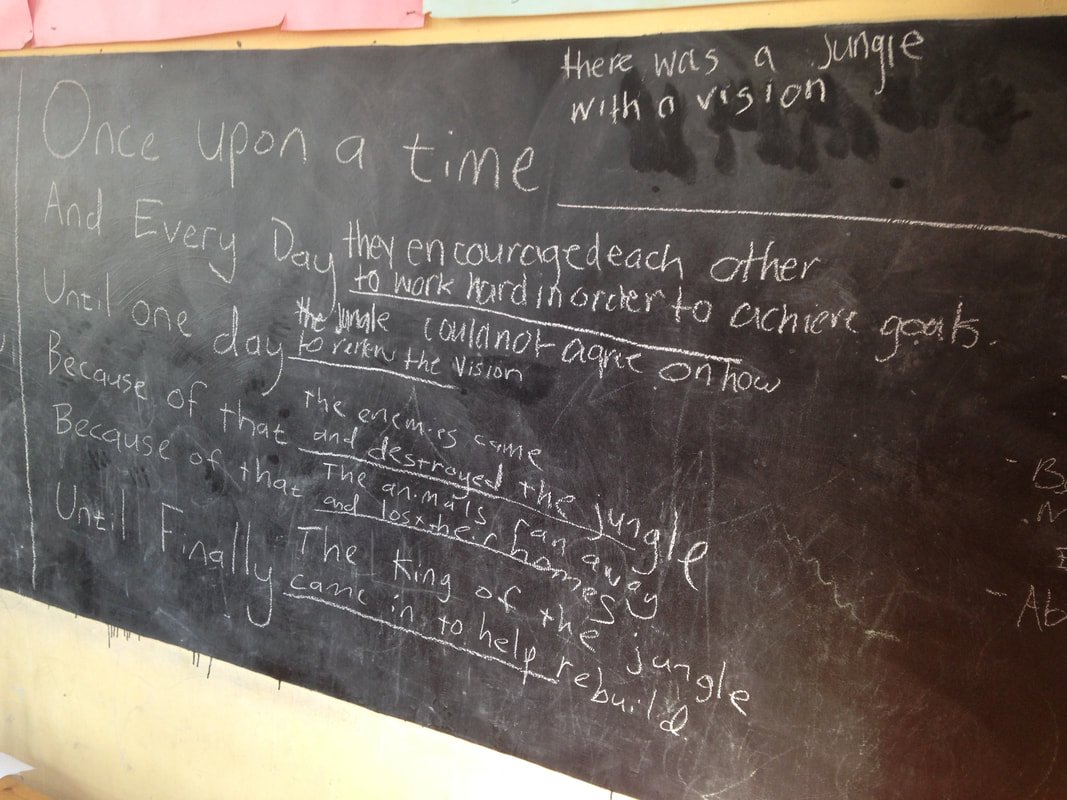 there was a jungle
with a vision
Once upon a time
And Every Day they encouraged each other
to work hard in order to achieve goals.
Until one day the jungle could not agree on how
to the vision
Because of that The enemies came
and destroyed the jungle
Because of that The animals ran away
and lost their homes
Until Finally The King of the jungle
came in to help rebuild.
Ab